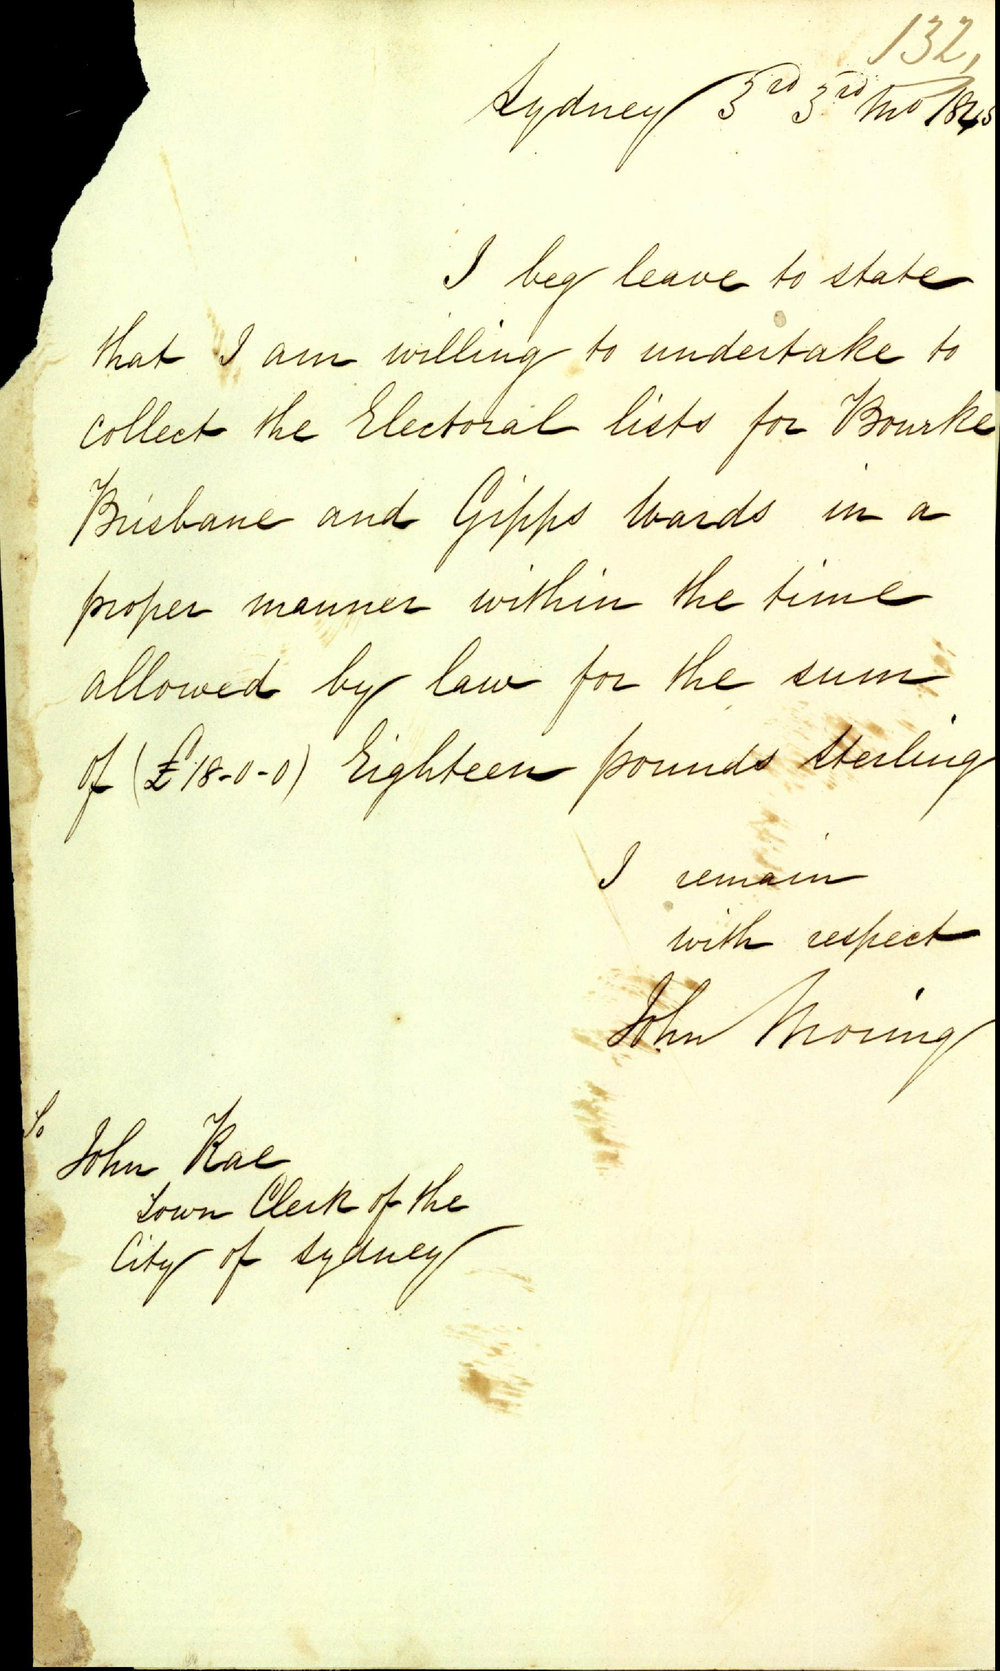 132,
Sydney 3rd 3rd Mo 1845
I beg leave to state
that I am willing to undertake to
collect the Electoral lists for Bourke
Brisbane and Gipps Wards in a
proper manner within the time
allowed by law for the sum
of (£18-0-0) Eighteen pounds Sterling
I remain
with respect
John Moring
To
John Rae
Town Clerk of the
City of Sydney